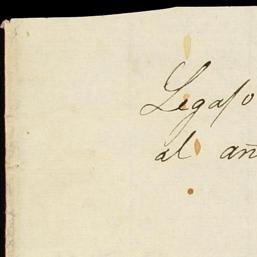 Legajo
al añ